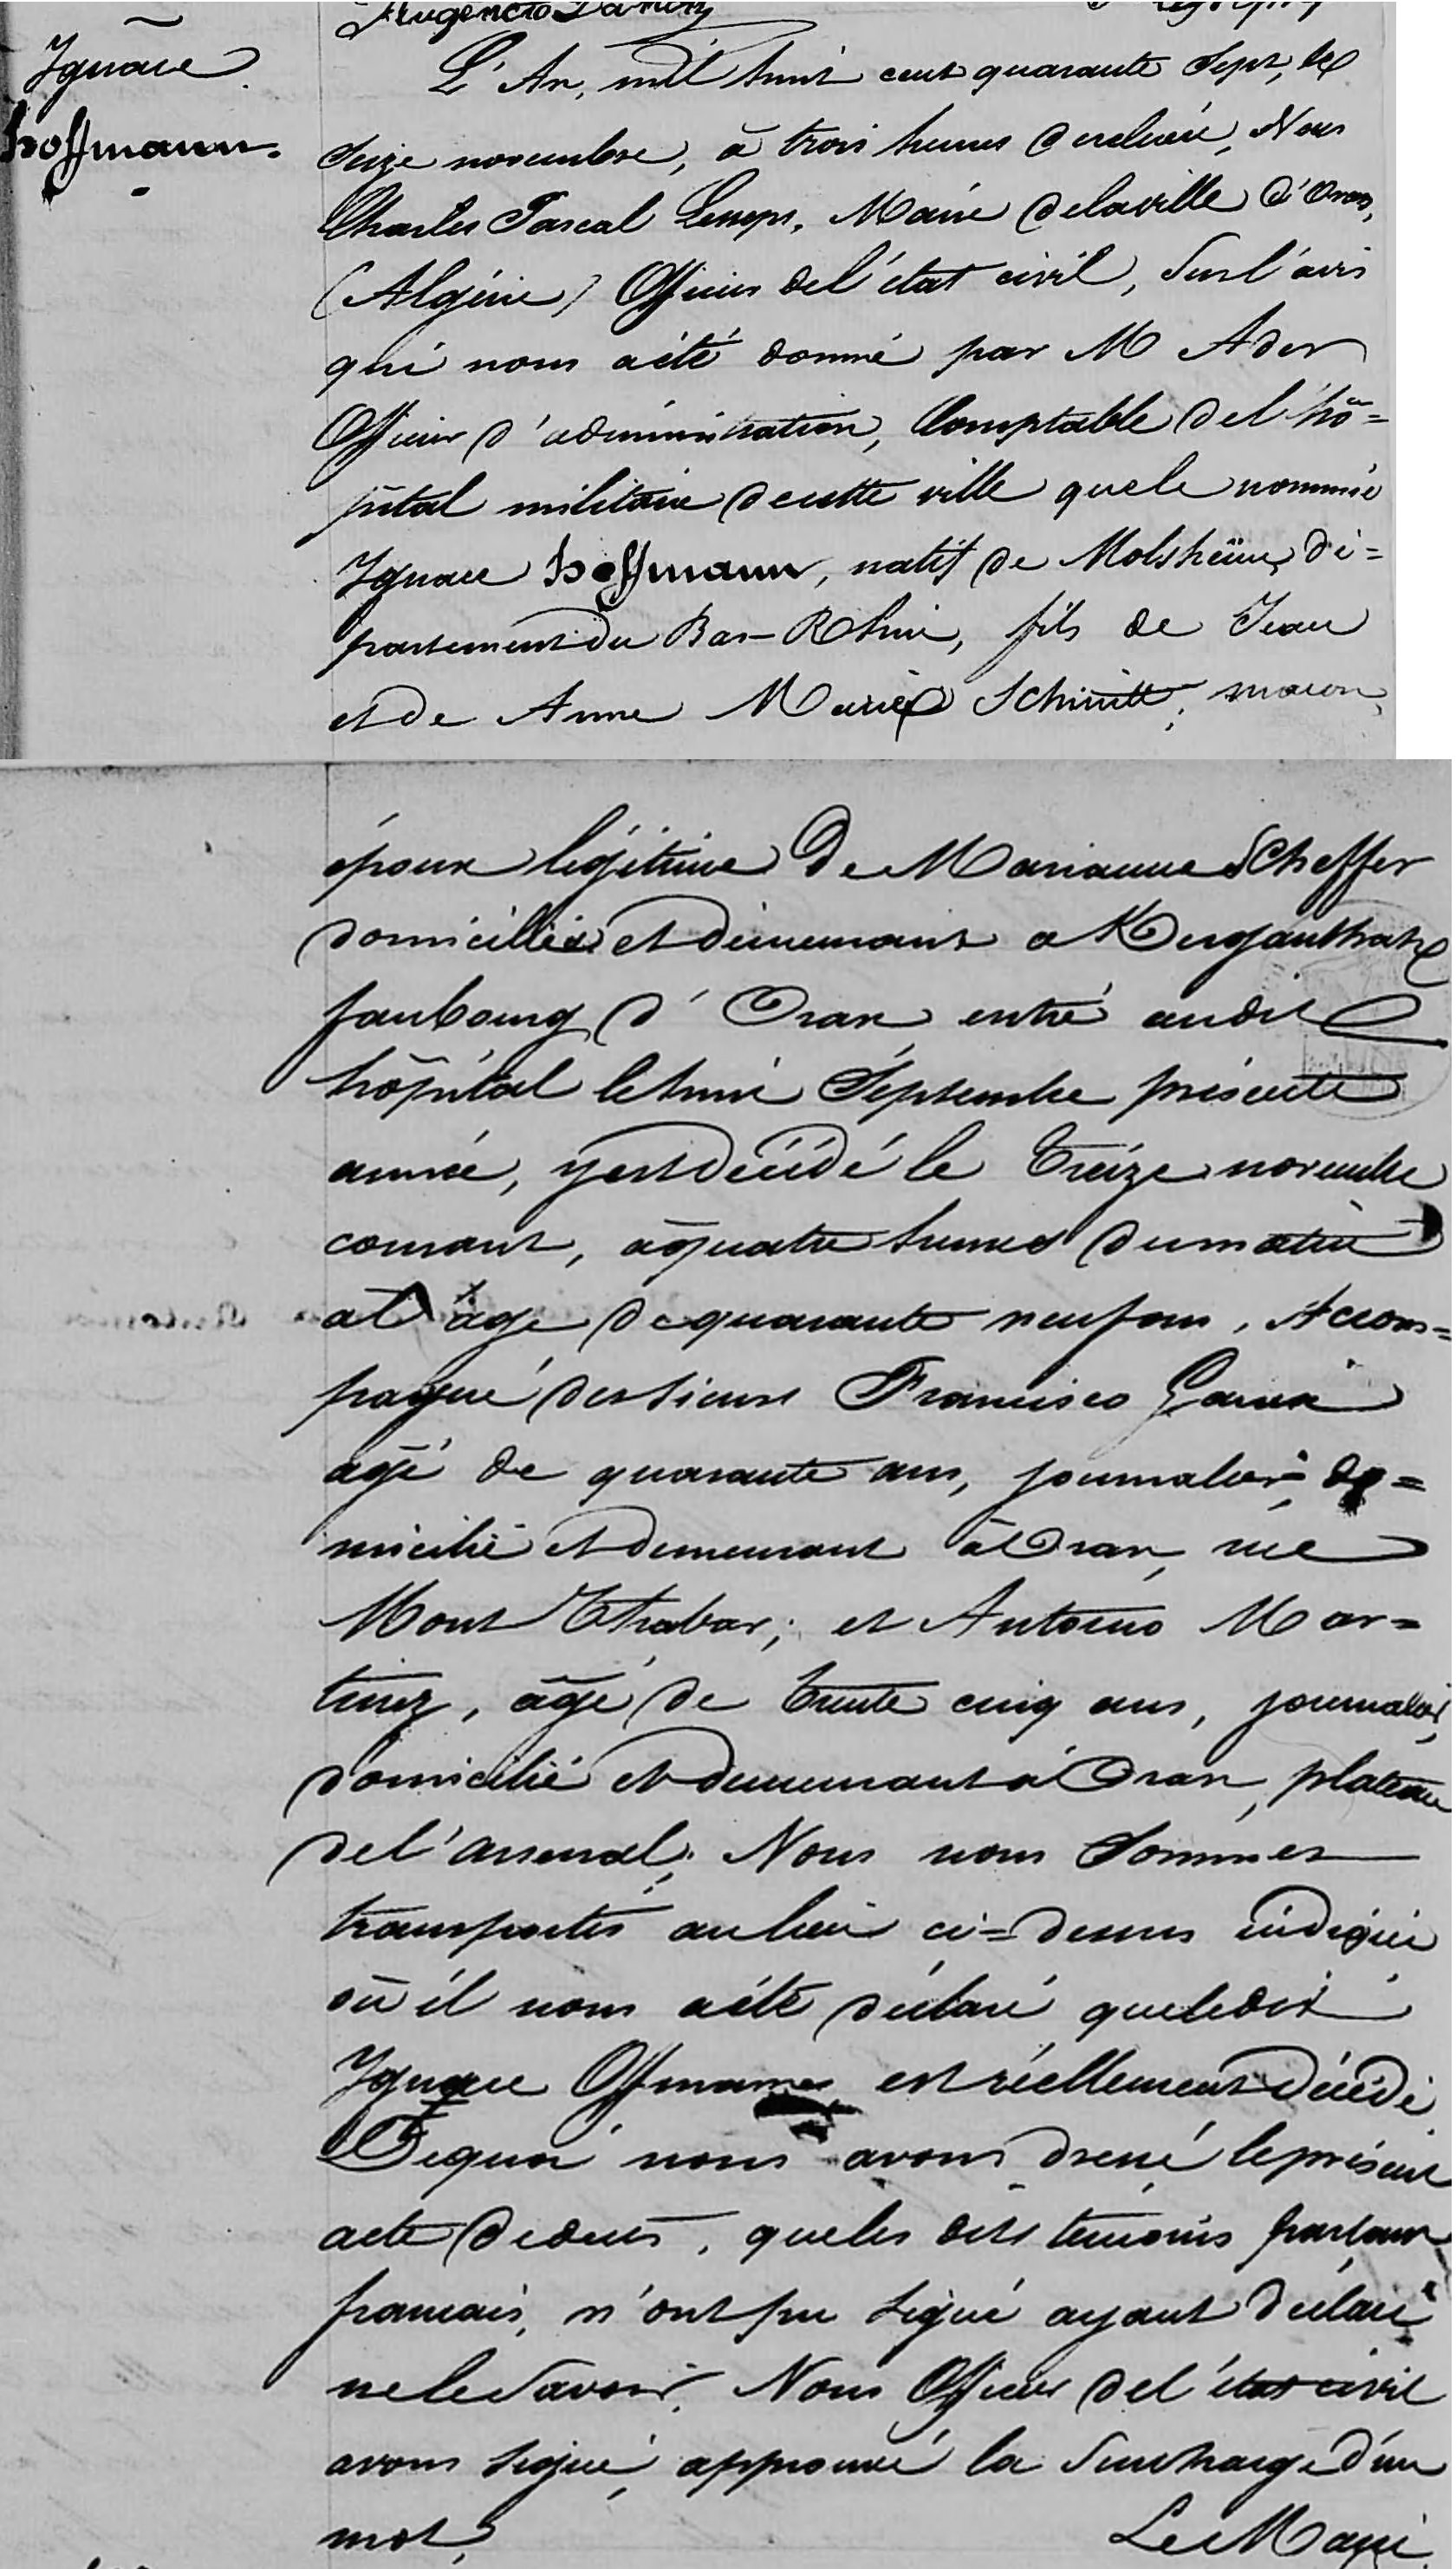 Ignace
hoffmann.
L'An, mil huit cent quarante Sept, le
Seize novembre, à trois heures de relevée, Nous
Charles Pascal Lesseps, Maire delaville d'Oran,
(Algérie) Officier del'état civil, Sur l'avis
qui nous aété donné par M Ader
Officier d'administration, Comptable del'hô=
pital militaire decette ville quele nommé
Ignace hoffmann, natif de Molsheim, dé=
partement du Bas-Rhin, fils de Jean
et de Anne Marie Schmitt, maçon,
époux légitime De Marianne Scheffer
domicilié et demeurant a Kerganthah
faubourg d'Oran entré audit
hôpital lehuit Septembre présente
année, yest décédé le treize novembre
courant, àquatre heures dumatin
al'âge dequarante neuf ans, Accom=
pagné des Sieurs Francisco Garcia
agé de quarante ans, journalier, do=
micilié et demeurant àOran, rue
Mont Thabor; et Antonio Mar=
tinez, âgé de trente cinq ans, journalier,
domicilié et demeurant à Oran, plateau
del'arsenal, Nous nous Sommes
transportés aulieu ci=dessus indiqué
où il nous aété déclaré queledit
Ignace Offmann est réellement décédé
Dequoi nous avons dressé leprésent
acte dedécès, queles dits témoins parlant
français, n'ont pu signé ayant déclaré
nelesavoir. Nous Officier del'état civil
avons signé, approuvé la Surcharge d'un
mot,
Le Maire.